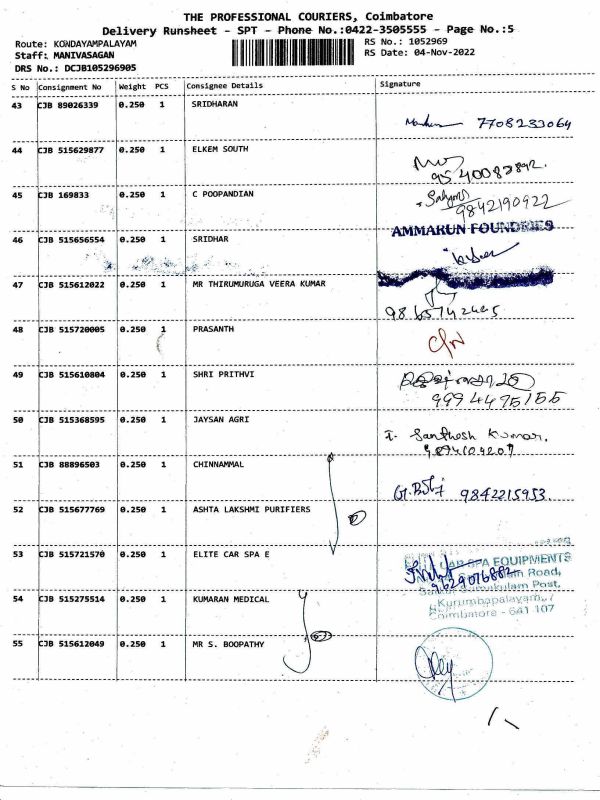 THE PROFESSIONAL COURIERS, Coimbatore
Delivery Runsheet - SPT - Phone No.:0422-3505555 - Page No.:5
Route: KONDAYAMPALAYAM
RS No.: 1052969
Staff: MANIVASAGAN
RS Date: 04-Nov-2022
DRS No.: DCJB105296905
S No Consignment No Weight PCS Consignee Details Signature
43 CJB 89026339 0.250 1 SRIDHARAN
7708233064
44 CJB 515629877 0.250 1 ELKEM SOUTH
9540082892.
45 CJB 169833 0.250 1 C POOPANDIAN
9842190922
AMMARUN FOUNDRIES
46 CJB 515656554 0.250 1 SRIDHAR
47 CJB 515612022 0.250 1 MR THIRUMURUGA VEERA KUMAR
48 CJB 515720005 1 PRASANTH
49 CJB 515610804 0.250 1 SHRI PRITHVI
9994475155
50 CJB 515368595 0.250 1 JAYSAN AGRI
I. Santhosh Kumar.
51 CJB 88896503 0.250 1 CHINNAMMAL
9842215953.
52 CJB 515677769 0.250 1 ASHTA LAKSHMI PURIFIERS
53 CJB 515721570 0.250 1 ELITE CAR SPA E
ELITE CAR SPA EQUIPMENTS
9629076882
Road,
Post,
Kurumbapalayam,
Coimbatore - 641 107
54 CJB 515275514 0.250 1 KUMARAN MEDICAL
55 CJB 515612049 0.250 1 MR S. BOOPATHY